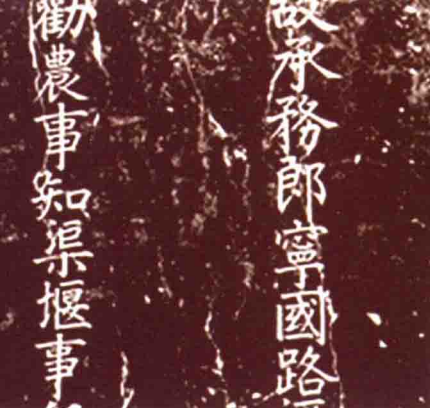 故承務郎寧國路
勸農事知渠堰事